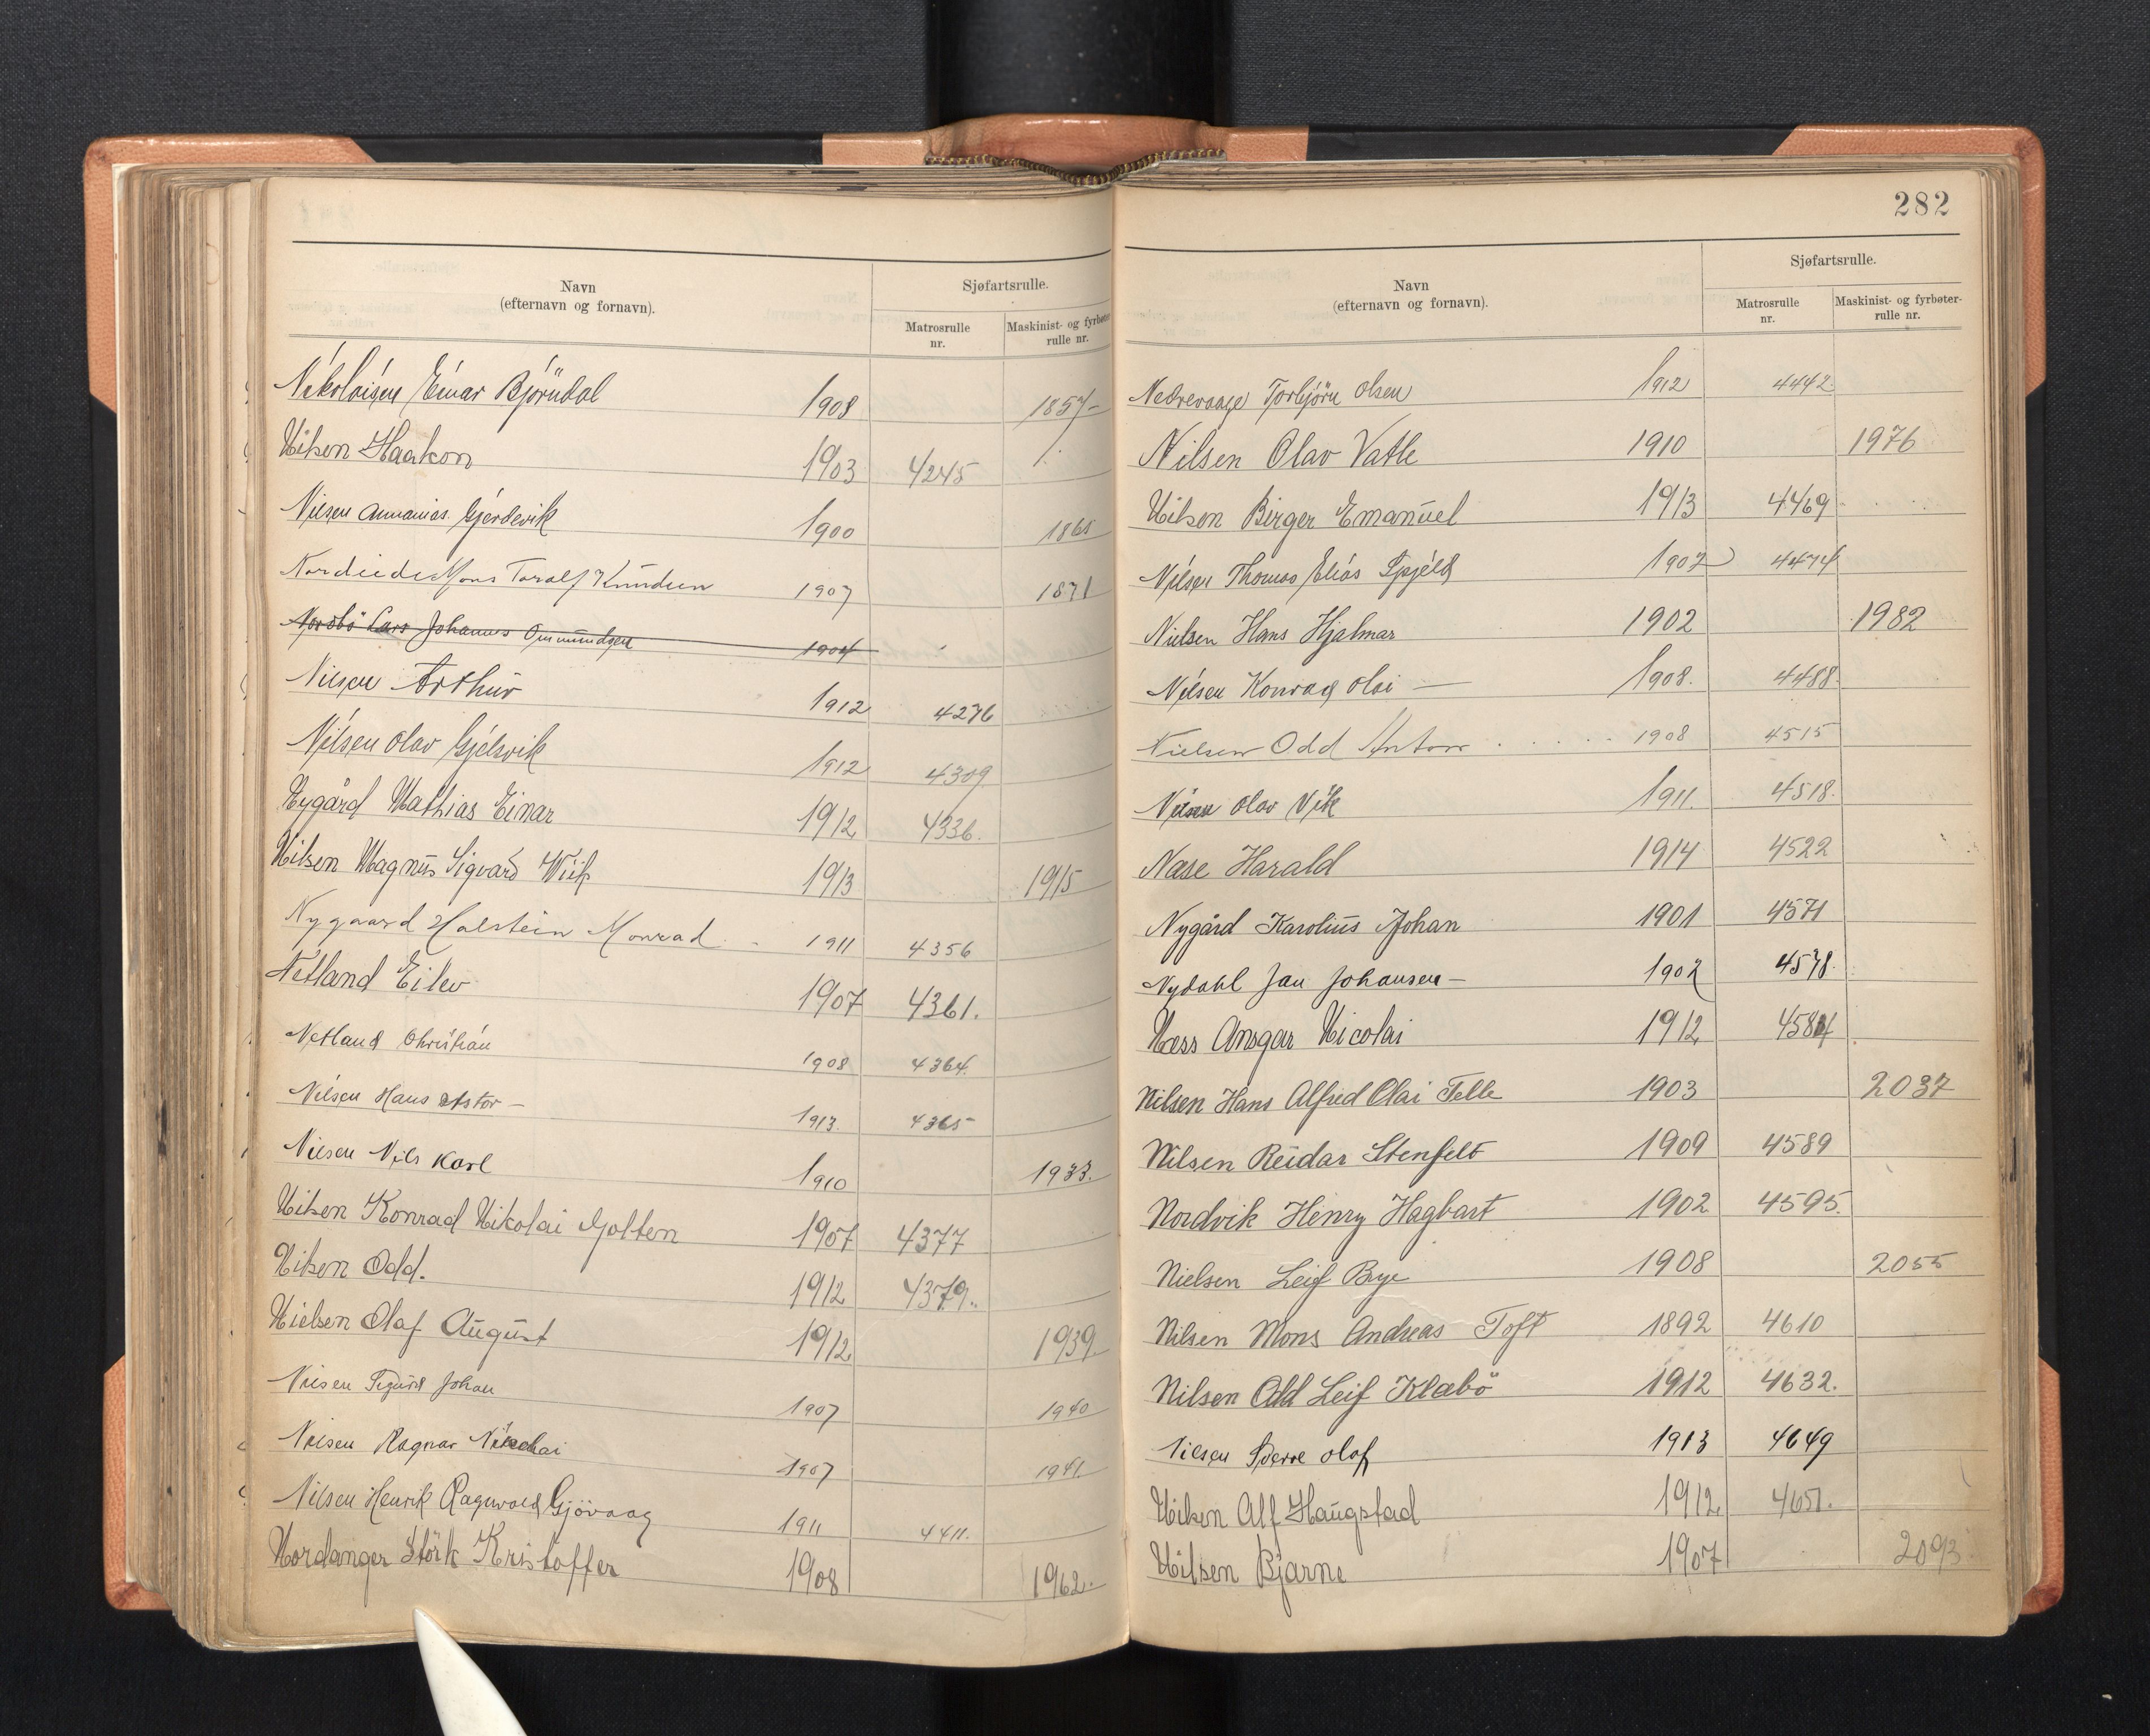 Navn
(efternavn og fornavn).
Sjøfartsrulle.
Matrosrulle
nr.
Maskinist- og fyrbøter-
rulle nr.
Nikolaisen Einar Björndal 1908 1857
Nilsen Haakon 1903 4245
Nilsen Annanias Gjerdevik 1900 1865
Nordeide Mons Toralf Knudsen 1907 1871
Nordbö Lars Johannes Ommundsen 1904
Nilsen Arthur 1912 4276
Nilsen Olav Gjelsvik 1912 4309
Nygård Mathias Einar 1912 4336.
Nilsen Magnus Sigvard Wiik 1913 1915
Nygaard Halstein Monrad 1911 4356
Netland Eilev 1907 4361.
Netland Christian 1908 4364.
Nilsen Hans Astor – 1913. 4365
Nilsen Nils Karl 1910 1933.
Nilsen Konrad Nikolai Golten 1907 4377
Nilsen Odd. 1912 4379.
Nielsen Olaf August 1912 1939.
Nilsen Sigurd Johan 1907 1940
Nilsen Ragnar Nikolai 1907 1941.
Nilsen Henrik Ragnvald Gjövaag 1911 4411.
Nordanger Störk Kristoffer 1908 1962.
282
Navn
(efternavn og fornavn).
Sjøfartsrulle.
Matrosrulle
nr.
Maskinist- og fyrbøter-
rulle nr.
Nedrevaage Torbjörn Olsen 1912 4442.
Nilsen Olav Vatle 1910 1976
Nilsen Birger Emanuel 1913 4469
Nilsen Thomas Elias Spjeld 1902 4474
Nielsen Hans Hjalmar 1902 1982
Nilsen Konrad Olai – 1908. 4488.
Nielsen Odd Anton 1908 4515
Nilsen Olav Vik 1911. 4518.
Næse Harald 1914 4522
Nygård Karolius Johan 1901 4571
Nydahl Jan Johansen – 1902 4578.
Næss Ansgar Nicolai 1912 4584
Nilsen Hans Alfred Olai Telle 1903 2037
Nilsen Reidar Stenfelt 1909 4589
Nordvik Henry Hagbart 1902 4595.
Nielsen Leif Bye 1908 2055
Nilsen Mons Andreas Toft 1892 4610
Nilsen Odd Leif Klæbö 1912 4632.
Nilsen Sverre Olaf 1913 4649
Nilsen Alf Haugstad 1912. 4651.
Nilsen Bjarne 1907 2093